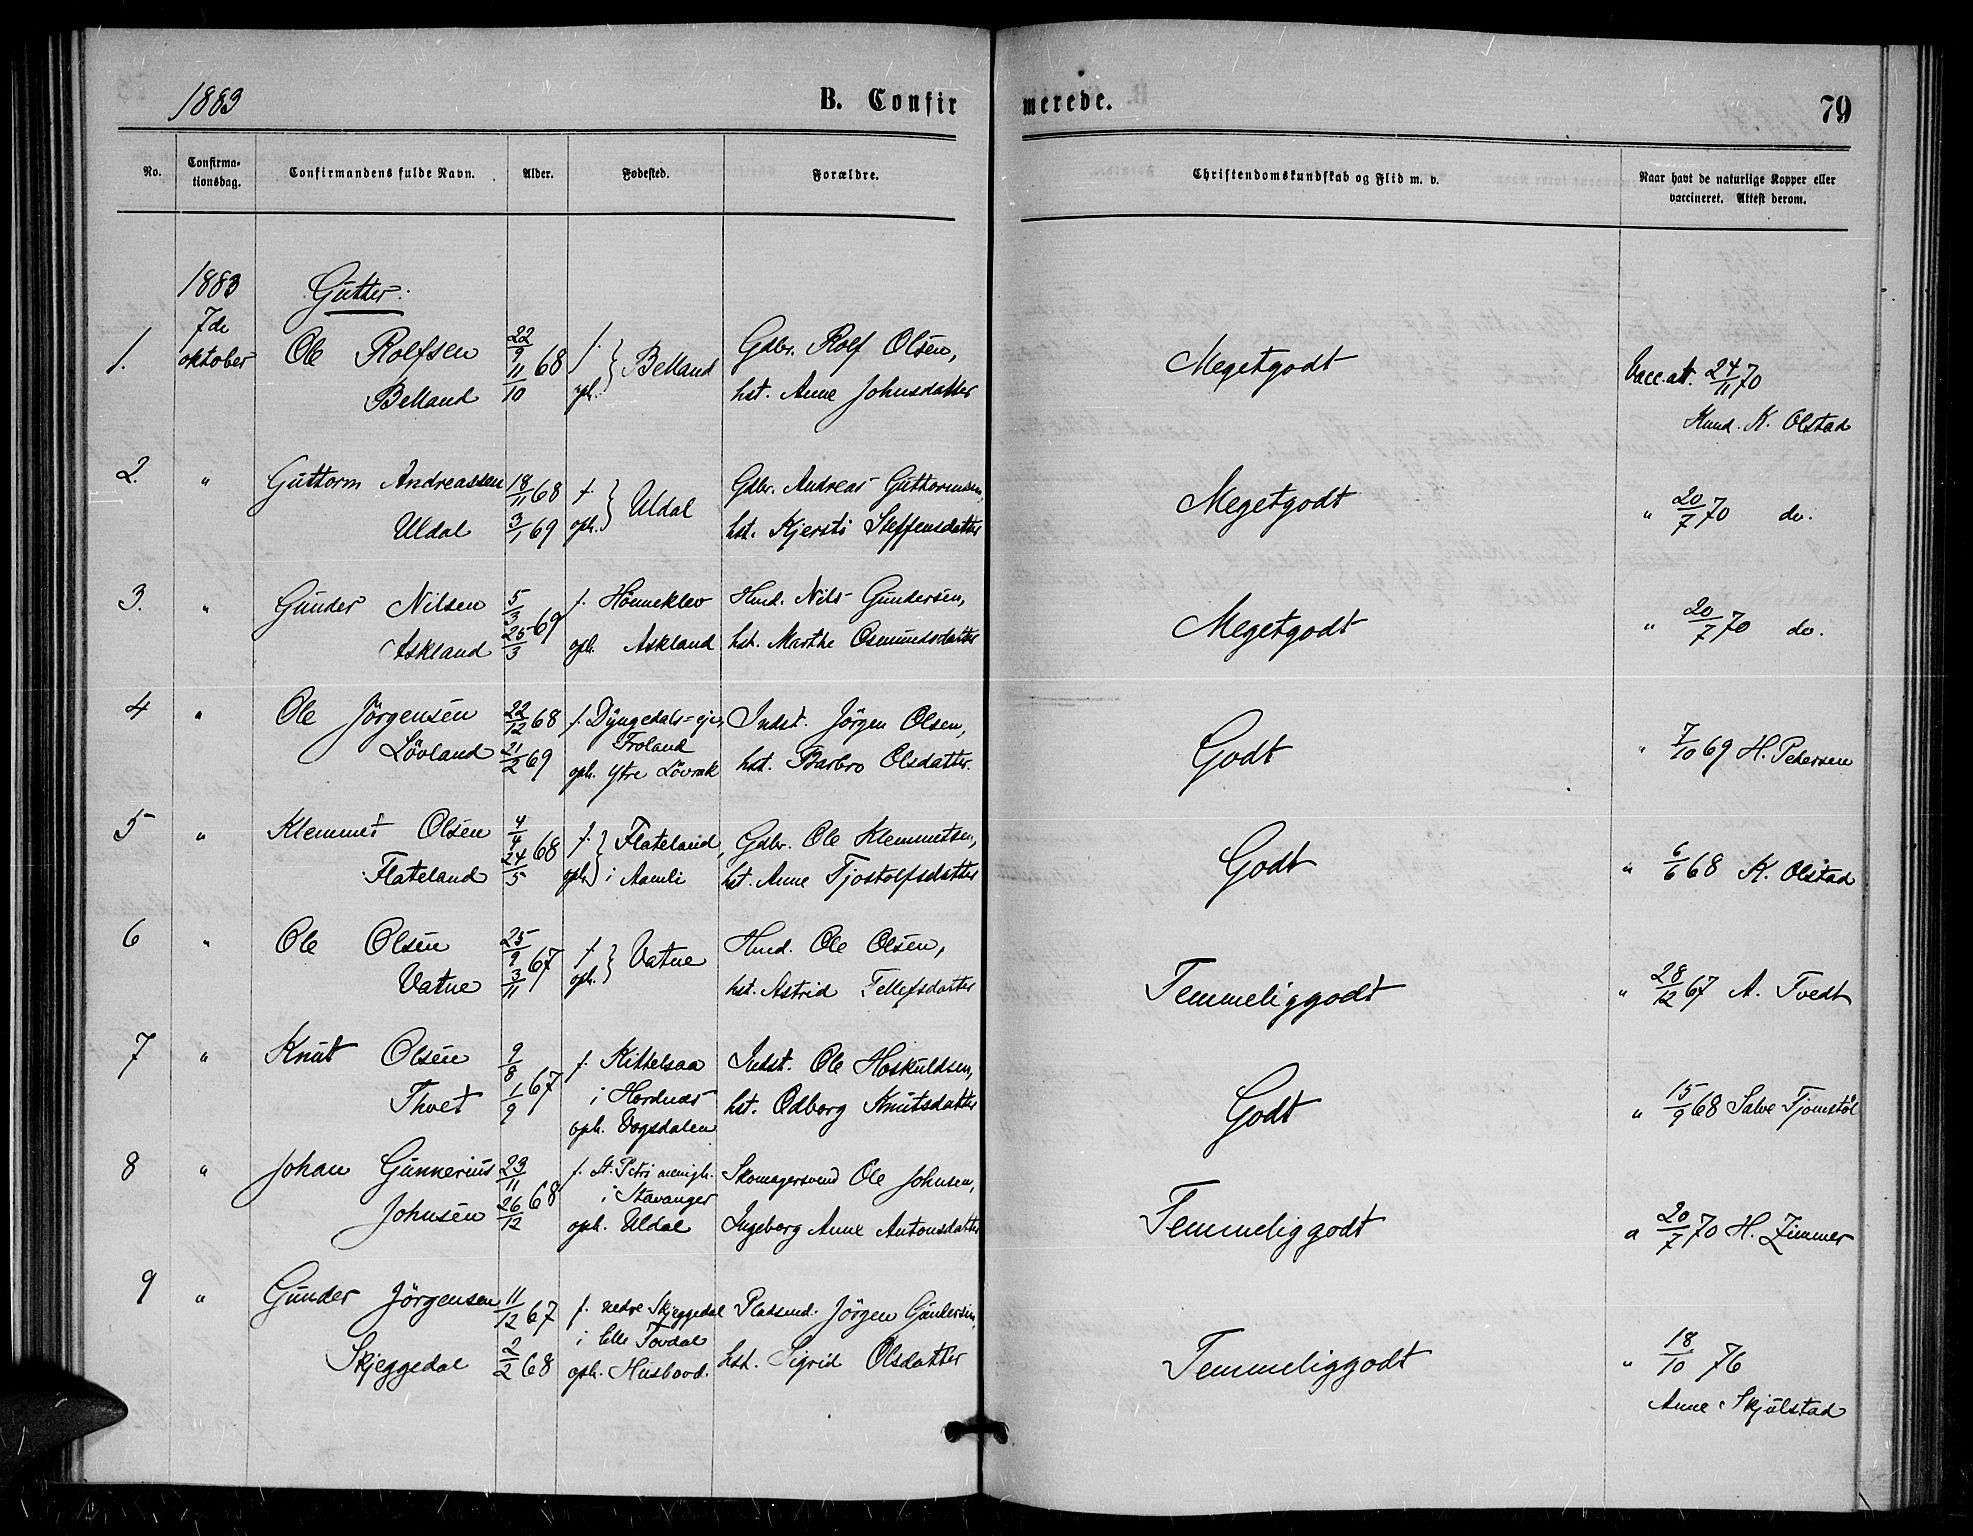 1883
B. Confirmerede.
79
No.
Confirmationsdag.
Confirmandens fulde Navn.
Alder.
Fødested.
Forældre.
Christendomskundskab og Flid m. v.
Naar havt de naturlige Kopper eller vaccineret. Attest derom.
1883
7de oktober
Gutter:
1. Ole Rolfsen Belland 22/9 11/10 68 f. opl. } Belland Gdbr. Rolf Olsen, hst. Anne Johnsdatter Megetgodt Vacc. att. 24/11 70 Knud. K. Olstad
2. " Guttorm Andreassen Uldal 18/11 68 3/1 69 f. opl. } Uldal Gdbr. Andreas Guttormsen, hst. Kjersti Steffensdatter Megetgodt " 20/7 70 do.
3. " Gunder Nilsen Askland 5/3 25/3 69 f. Hönneklev opl. Askland Hmd. Nils Gundersen, hst. Marthe Osmundsdatter Megetgodt " 20/7 70 do.
4 " Ole Jörgensen Lövland 22/12 68 21/2 69 f. Dyngedals=eje, Froland opl. Ytre Lövrak Indst. Jörgen Olsen, hst. Barbro Olsdatter. Godt " 7/10 69 H. Pedersen
5 " Klemmet Olsen Flateland 4/4 24/5 68 f. opl. } Flateland, i Aamli Gdbr. Ole Klemmetsen, hst. Anne Tjostolfsdatter Godt " 6/6 68 K. Olstad
6 " Ole Olsen Vatne 25/9 3/11 67 f. opl. } Vatne Hmd. Ole Olsen, hst. Astrid Tellefsdatter Temmeliggodt " 28/12 67 A. Tvedt
7 " Knut Olsen Thvet 9/8 1/9 67 f. Kittelsaa i Hordnæs opl. Vegsdalen Indst. Ole Hoskuldsen, hst. Odborg Knutsdatter Godt " 15/9 68 Salve Tjomstöl
8 " Johan Gunnerius Johnsen 23/11 26/12 68 f. St. Petri menigh. i Stavanger opl. Uldal Skomagersvend Ole Johnsen, Ingeborg Anne Antonsdatter Temmeliggodt " 20/7 70 H. Zimmer
9 " Gunder Jörgensen Skjeggedal 11/12 67 2/2 68 f. nedre Skjeggedal i lille Tovdal opl. Husbovd. Pladsmd. Jörgen Gundersen, hst. Sigrid Olsdatter Temmeliggodt " 18/10 76 Anne Skjulstad